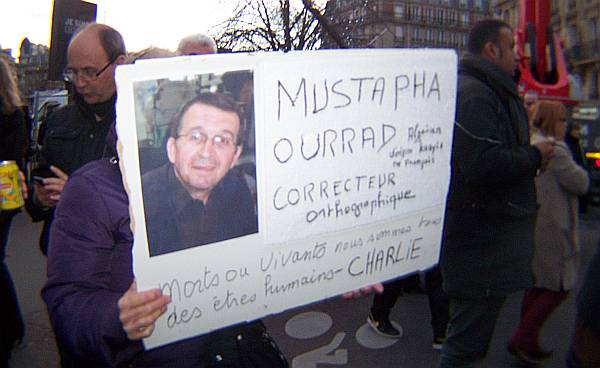 JE SUIS
MUSTAPHA
OURRAD
Algérien
origine kabyle
et Français
CORRECTEUR
orthographique
Morts ou Vivants nous sommes tous
des êtres humains - CHARLIE